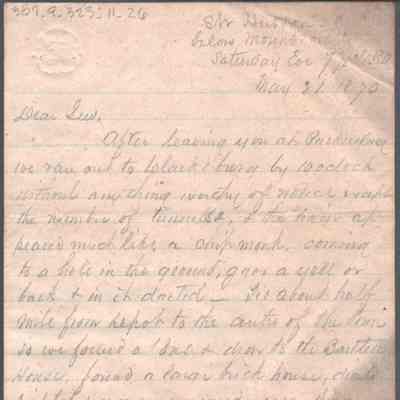 357.9.323:11.26
Str Hudson
below Mound City
Saturday Eve 7 P.M.
May 21 1870
Dear Lew,
After leaving you at Parkersburg
we ran out to Clarksburg by 10 oclock
without anything worthy of notice except
the number of tunnels, & the train ap
peared much like a chipmonk, coming
to a hole in the ground, gave a yell or
bark & in it darted — Its about half
mile from depot to the centre of the town
so we found a bus & drove to the Bartlett
House, found a large brick house,